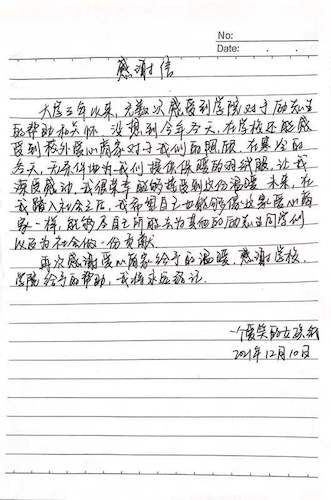 No:
Date:
感谢信
大学三年以来,无数次感受到学院对于励志生
的帮助和关怀,没想到今年冬天,在学校还能感
受到校外爱心商家对于我们的照顾,在寒冷的
冬天,无条件地为我们提供保暖的羽绒服,让我
深受感动,我很荣幸能够接受到这份温暖,未来,在
我踏入社会之后,我希望自己也能够像这家爱心商
家一样,能够尽自己所能去为其他的励志生同学们
以及为社会做一份贡献.
再次感谢爱心商家给予的温暖,感谢学校,
学院给予的帮助,我将永远铭记.
一个爱笑的女孩纸
2021年12月10日